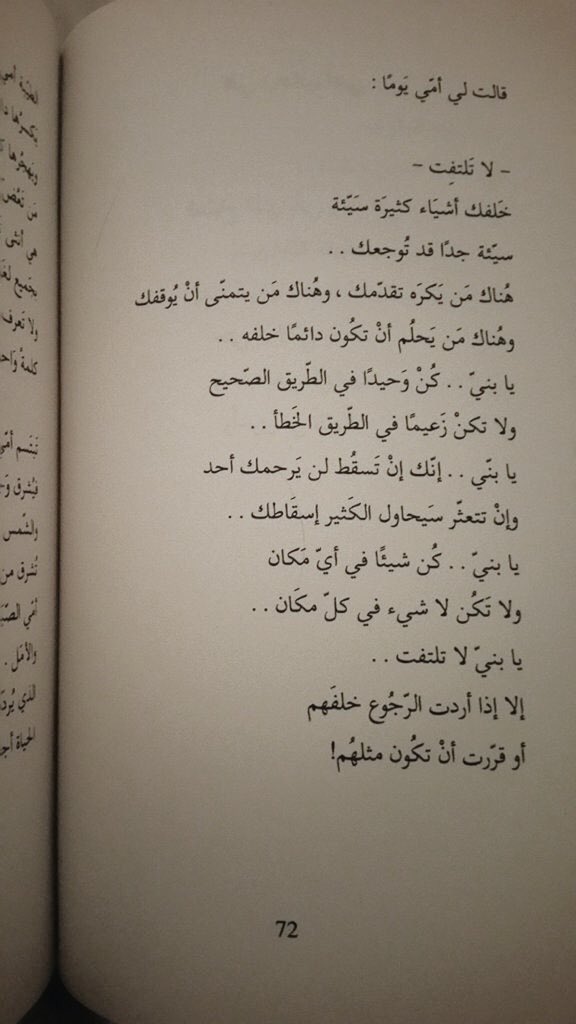 قالت لي أمّي يَومًا :
– لا تَلتفِت –
خَلفك أشيَاء كثيرَة سَيّئة
سيّئة جدًا قد تُوجعك . .
هُناك مَن يَكرَه تقدّمك ، وهُناك مَن يتمنّى أنْ يُوقفك
وهُناك مَن يَحلُم أنْ تكُون دائمًا خلفه . .
يا بنيّ . . كُنْ وَحيدًا في الطّريق الصّحيح
ولا تكنْ زَعيمًا في الطّريق الخَطأ . .
يا بنّي . . إنّك إنْ تَسقُط لن يَرحمك أحد
وإنْ تتعثّر سَيحاول الكَثير إسقَاطك . .
يا بنيّ . . كُن شيئًا في أيّ مَكان
ولا تَكُن لا شيء في كلّ مكَان . .
يا بنيّ لا تلتفت . .
إلا إذا أردت الرّجُوع خلفَهم
أو قرّرت أنْ تكُون مثلهُم!
72